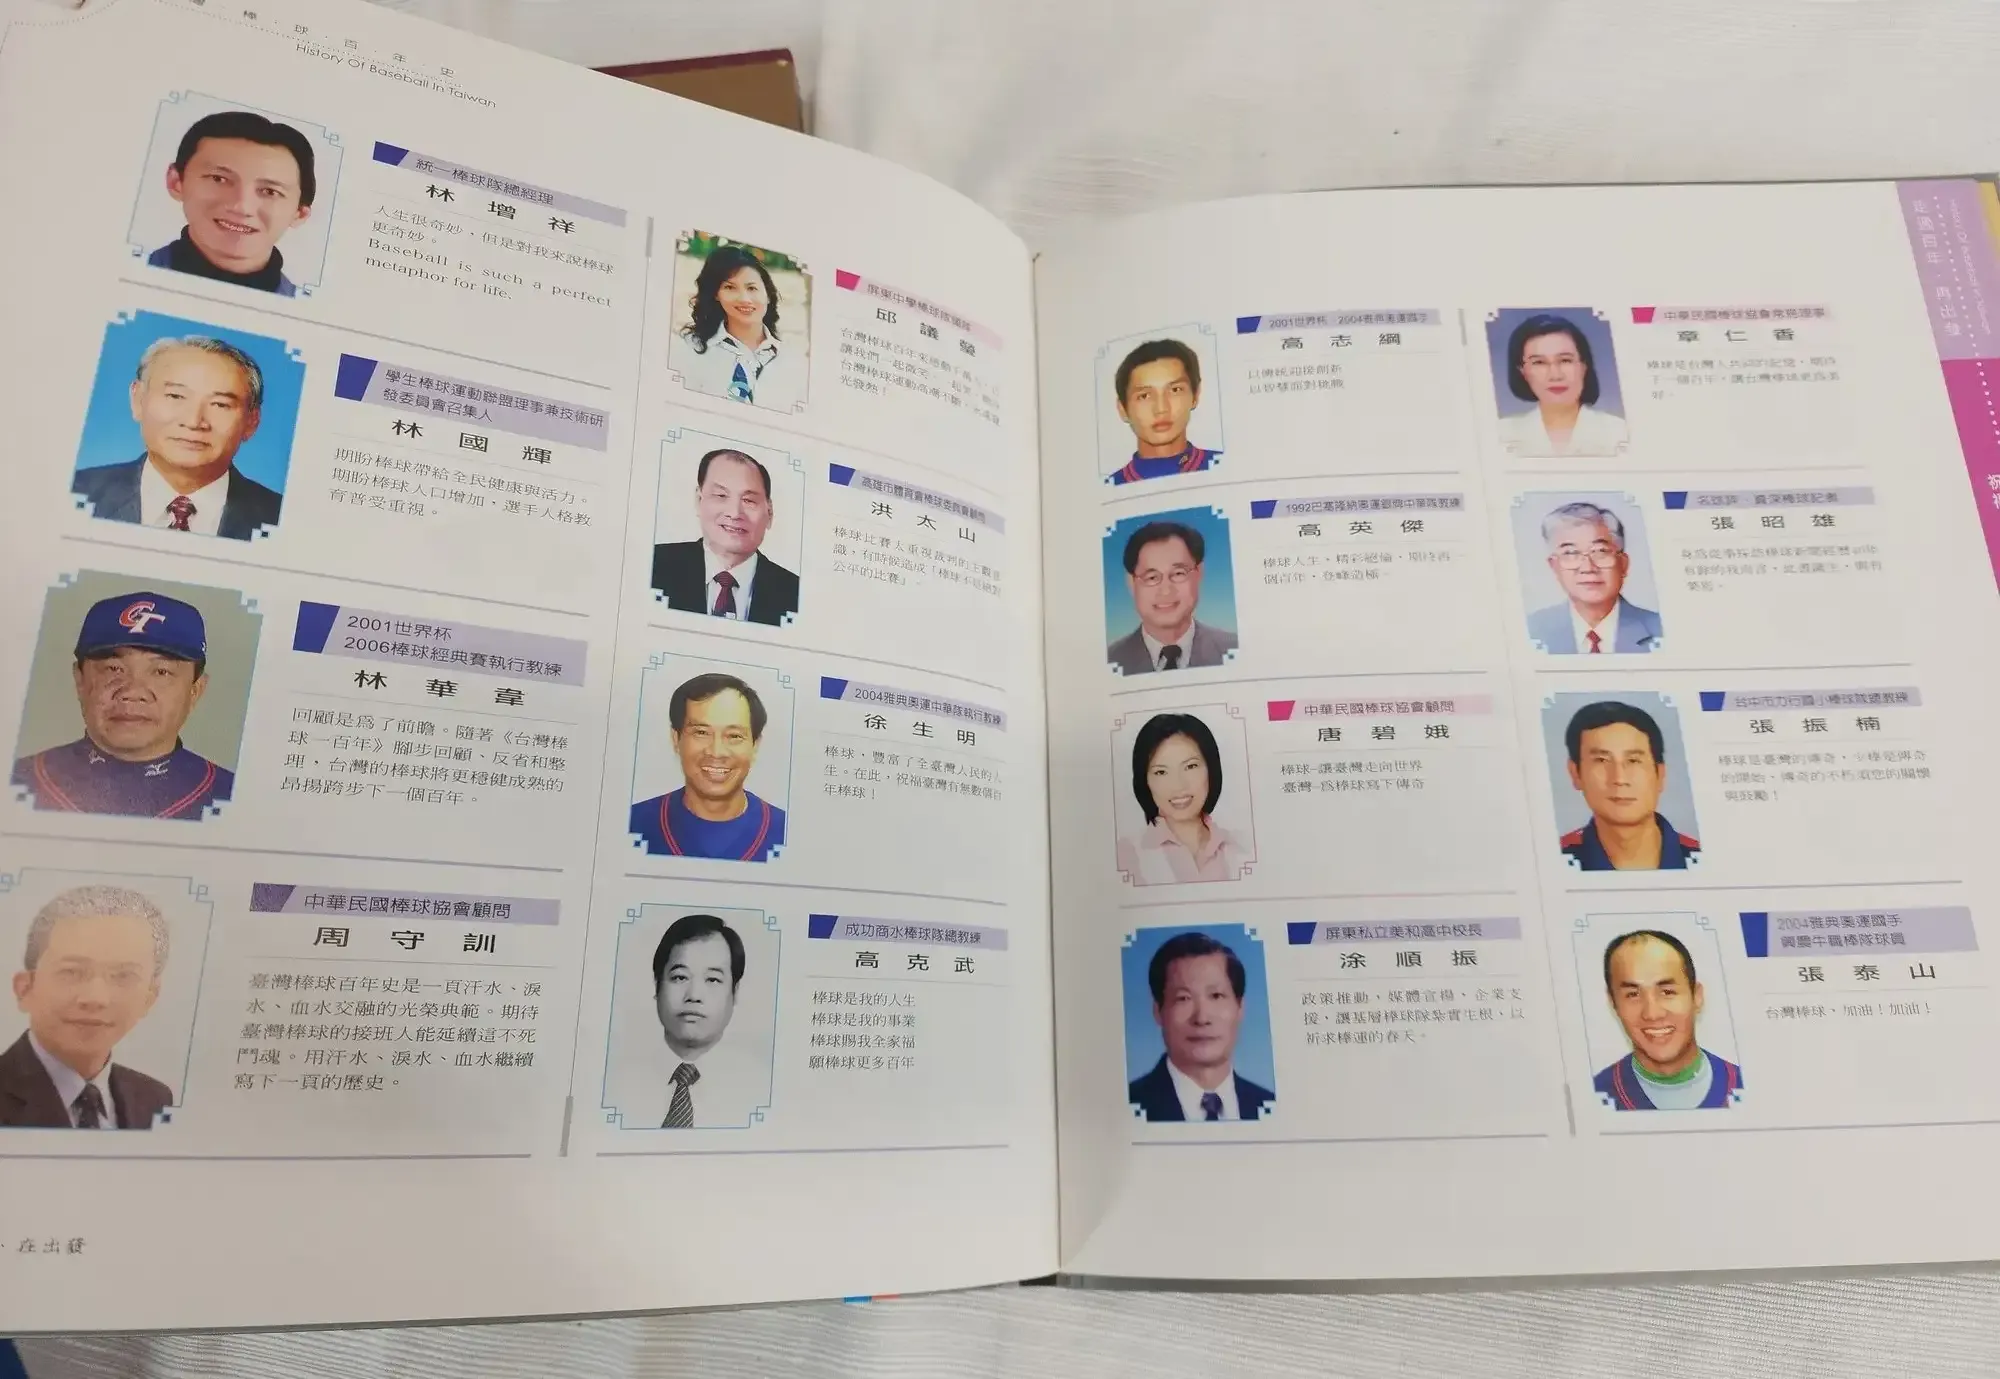 棒·球·百·年·史
History Of Baseball In Taiwan
統一棒球隊總經理
林增祥
人生很奇妙，但是對我來說棒球
更奇妙。
Baseball is such a perfect
metaphor for life.
學生棒球運動聯盟理事兼技術研
發委員會召集人
林國輝
期盼棒球帶給全民健康與活力。
期盼棒球人口增加，選手人格教
育普受重視。
2001世界杯
2006棒球經典賽執行教練
林華韋
回顧是為了前瞻。隨著《台灣棒
球一百年》腳步回顧、反省和整
理，台灣的棒球將更穩健成熟的
昂揚跨步下一個百年。
中華民國棒球協會顧問
周守訓
臺灣棒球百年史是一頁汗水、淚
水、血水交融的光榮典範。期待
臺灣棒球的接班人能延續這不死
鬥魂。用汗水、淚水、血水繼續
寫下一頁的歷史。
屏東中學棒球隊領隊
邱議瑩
台灣棒球百年來感動千萬人，
讓我們一起微笑、一起哭，期待
台灣棒球運動高潮不斷，永遠發
光發熱！
高雄市體育會棒球委員會顧問
洪太山
棒球比賽太重視裁判的主觀意
識，有時候造成「棒球不是絕對
公平的比賽」。
2004雅典奧運中華隊執行教練
徐生明
棒球，豐富了全臺灣人民的人
生。在此，祝福臺灣有無數個百
年棒球！
成功商水棒球隊總教練
高克武
棒球是我的人生
棒球是我的事業
棒球賜我全家福
願棒球更多百年
在出發
2001世界杯、2004雅典奧運國手
高志綱
以傳統迎接創新
以智慧面對挑戰
1992巴塞隆納奧運銀牌中華隊教練
高英傑
棒球人生，精彩絕倫，期待再一
個百年，登峰造極。
中華民國棒球協會顧問
唐碧娥
棒球-讓臺灣走向世界
臺灣-為棒球寫下傳奇
屏東私立美和高中校長
涂順振
政策推動，媒體宣揚、企業支
援，讓基層棒球隊紮實生根，以
祈求棒運的春天。
中華民國棒球協會常務理事
章仁香
棒球是台灣人共同的記憶，期待
下一個百年，讓台灣棒球更為美
好。
名球評、資深棒球記者
張昭雄
身為從事採訪棒球新聞經歷40年
有餘的我而言，此書誕生，別有
榮感。
台中市力行國小棒球隊總教練
張振楠
棒球是臺灣的傳奇，少棒是傳奇
的開始，傳奇的不朽須您的關懷
與鼓勵！
2004雅典奧運國手
興農牛職棒隊球員
張泰山
台灣棒球，加油！加油！
走過百年·再出發
祝福